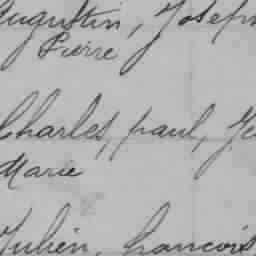 Augustin, Joseph
Pierre
Charles, paul, Je
Marie
Julien, francois